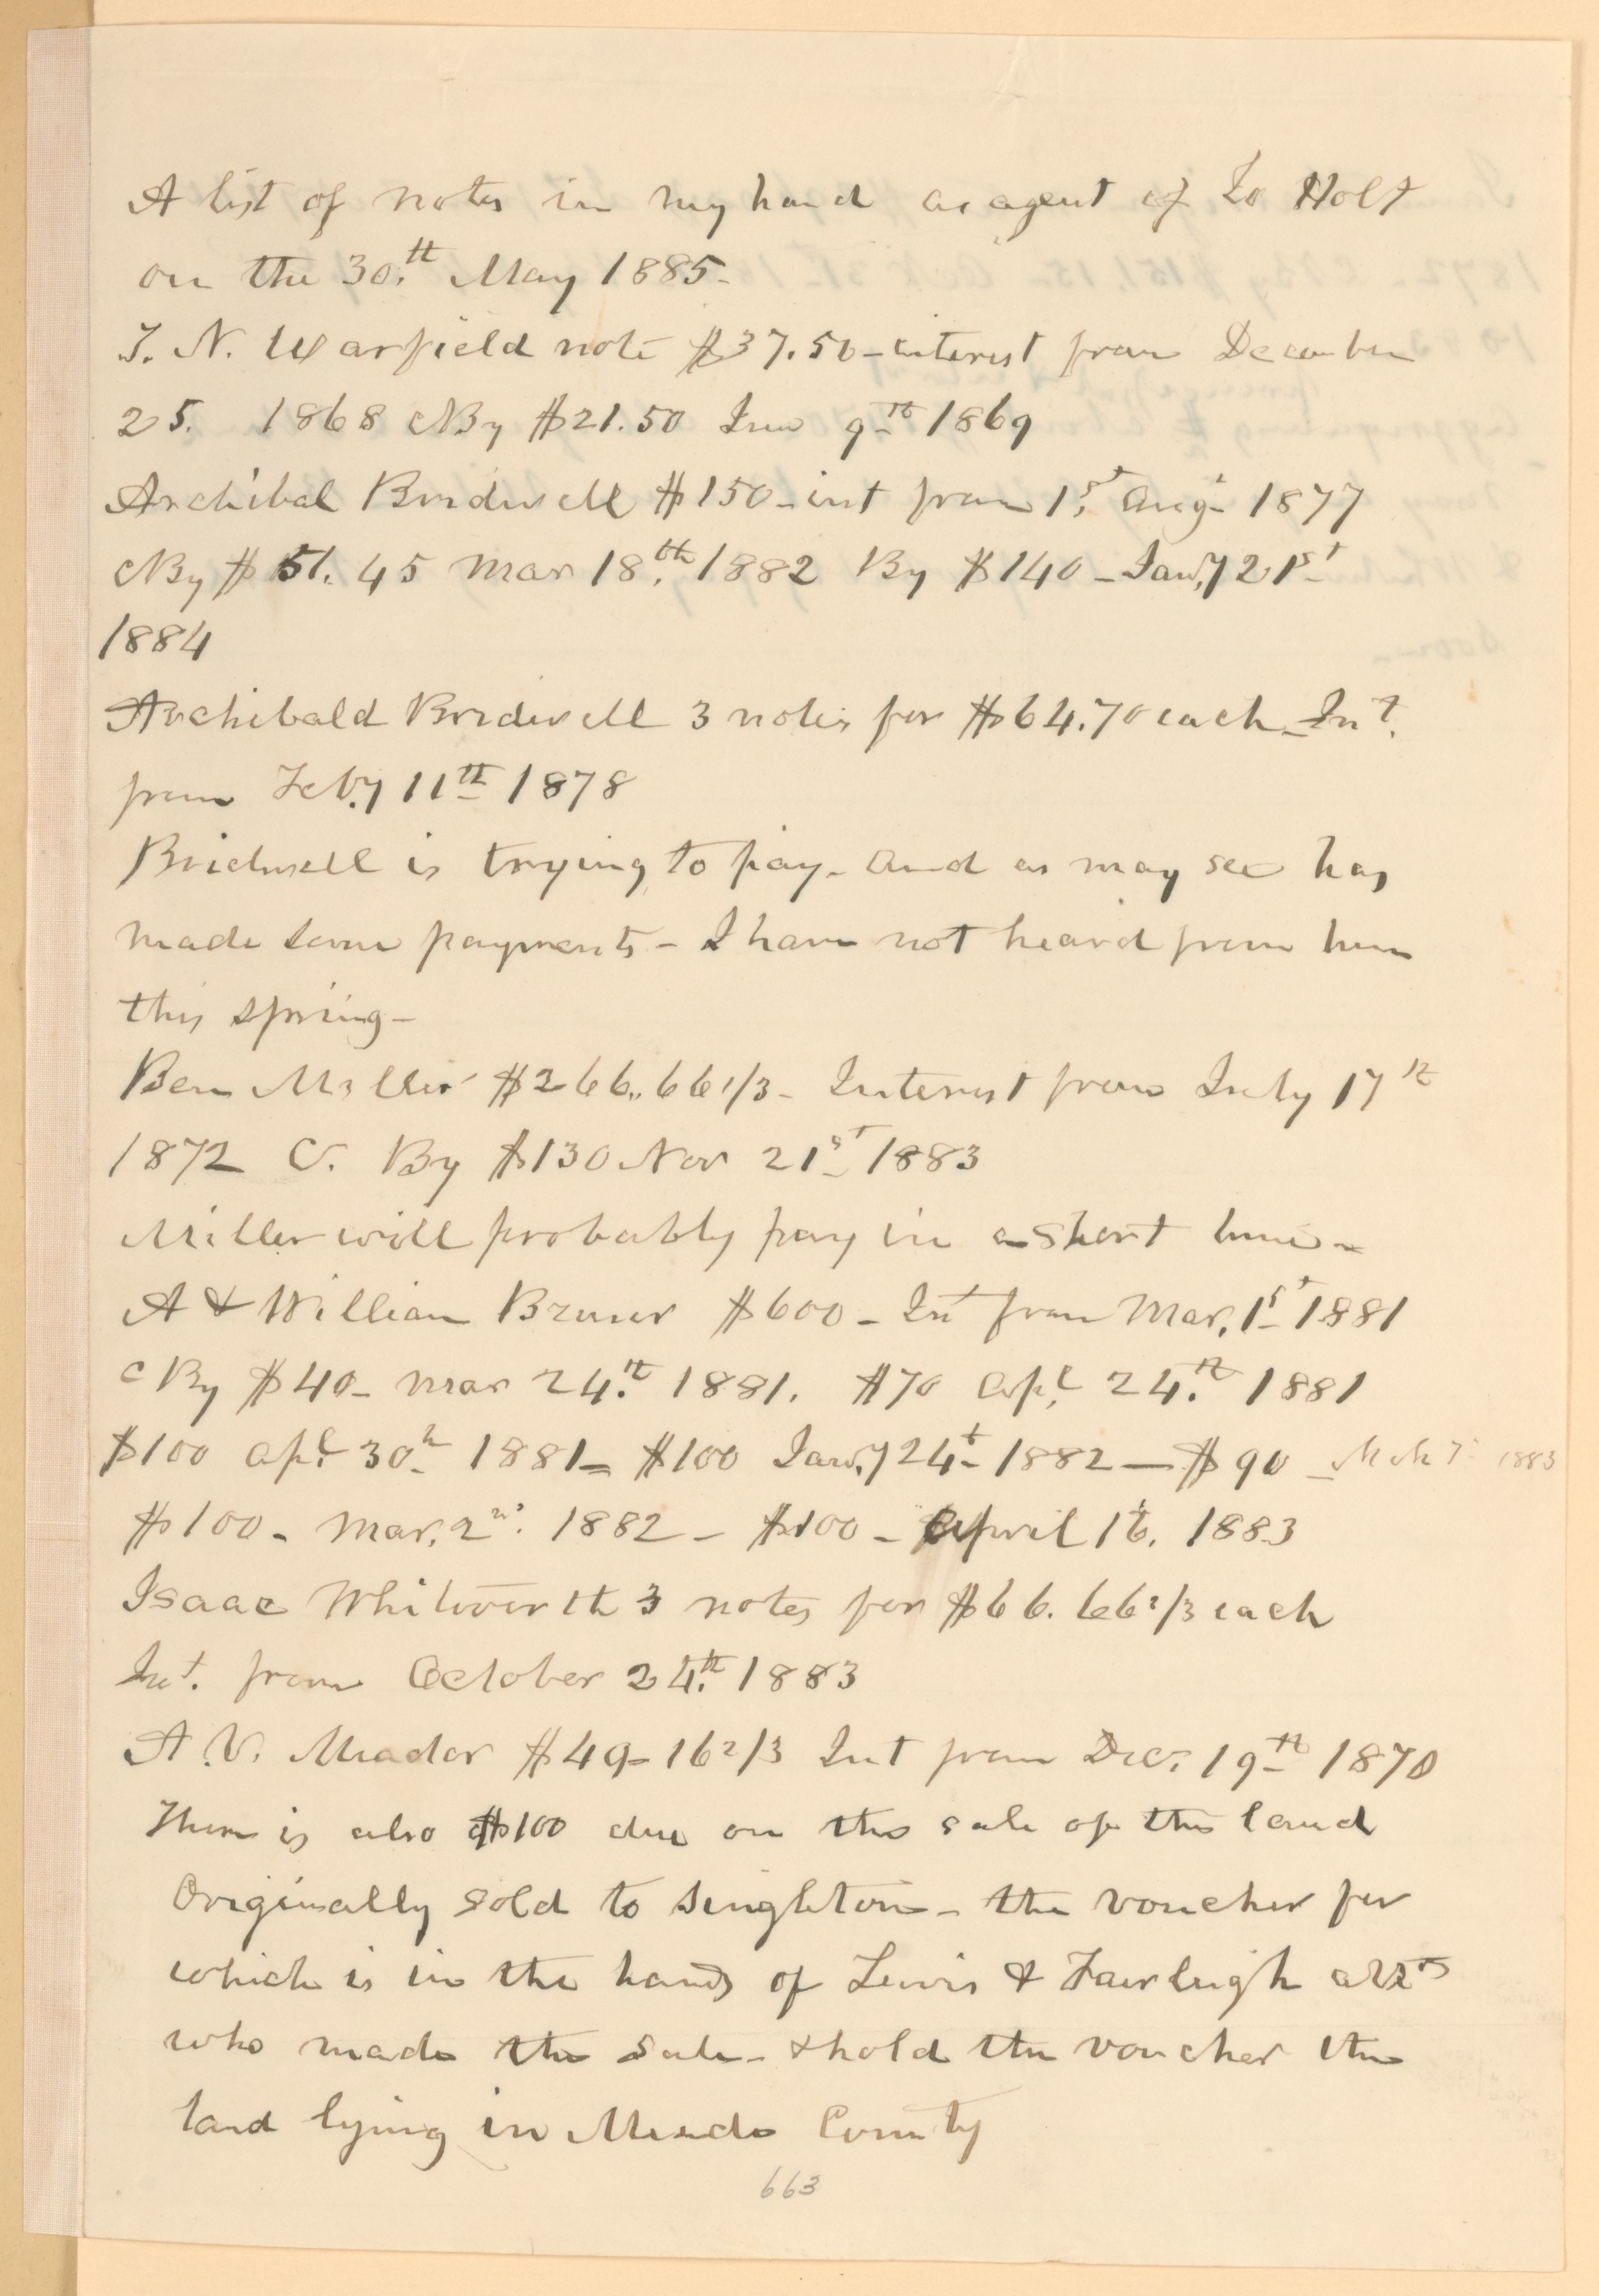 A list of notes in my hand as agent of Jo Holt
on the 30.th May 1885-
T. N. Warfield note $37.50 - interest from December
25. 1868 CBy $21.50 9th 1869
Archibal Bridwell $150 - int from 1st Augt 1877
CBy $51.45 Mar 18.th 1882 By $140 - Jany 21st
1884
Archibald Bridwell 3 notes for $64.70 each - Int.
from Feb.y 11th 1878
Bridwell is trying to pay - and as may see has
made some payments - I have not heard from him
this spring -
Ben Miller $266.66 1/3 - Interest from July 17th
1872 C. By $130 Nov 21st 1883
Miller will probably pay in a short time -
A & William Bruner $600 - Int from Mar. 1st 1881
CBy $40 - Mar 24.th 1881. $70 Apl. 24.th 1881
$100 Apl. 30th 1881 = $100 Jan.y 24th 1882 — $90 - 1883
$100 - Mar. 2nd. 1882 - $100 - April 16. 1883
Isaac Whitworth 3 notes for $66.66 2/3 each
Int. from October 24.th 1883
A. V. Meador $49-16 2/3 Int from Dec. 19th 1870
There is also $100 due on the sale of the land
Originally sold to Singleton - the voucher for
which is in the hands of Lewis & Fairleigh attys
who made the sale - & hold the voucher the
land lying in Meade County
663